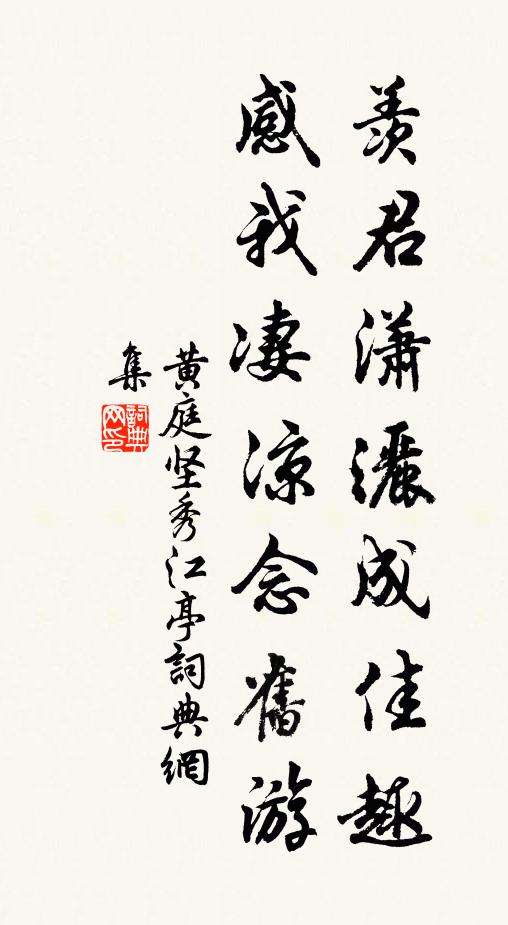 羨君瀟灑成佳趣
感我凄涼念舊游
黄庭坚秀江亭詞典網
集
詞典网印